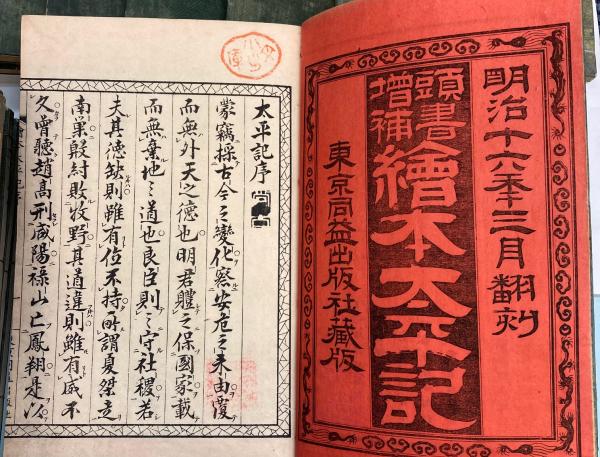 明治十六年三月翻刻
頭書
增補
繪本太平記
東京同益出版社藏版
太平記序
蒙竊採古今之變化察安危之來由覆
而無外天之德也明君體之保國家載
而無棄地之道也良臣則之守社稷若
夫其德缺則雖有位不持所謂夏桀走
南巢殷紂敗牧野其道違則雖有威不
久曾聽趙高刑咸陽祿山亡鳳翔是以